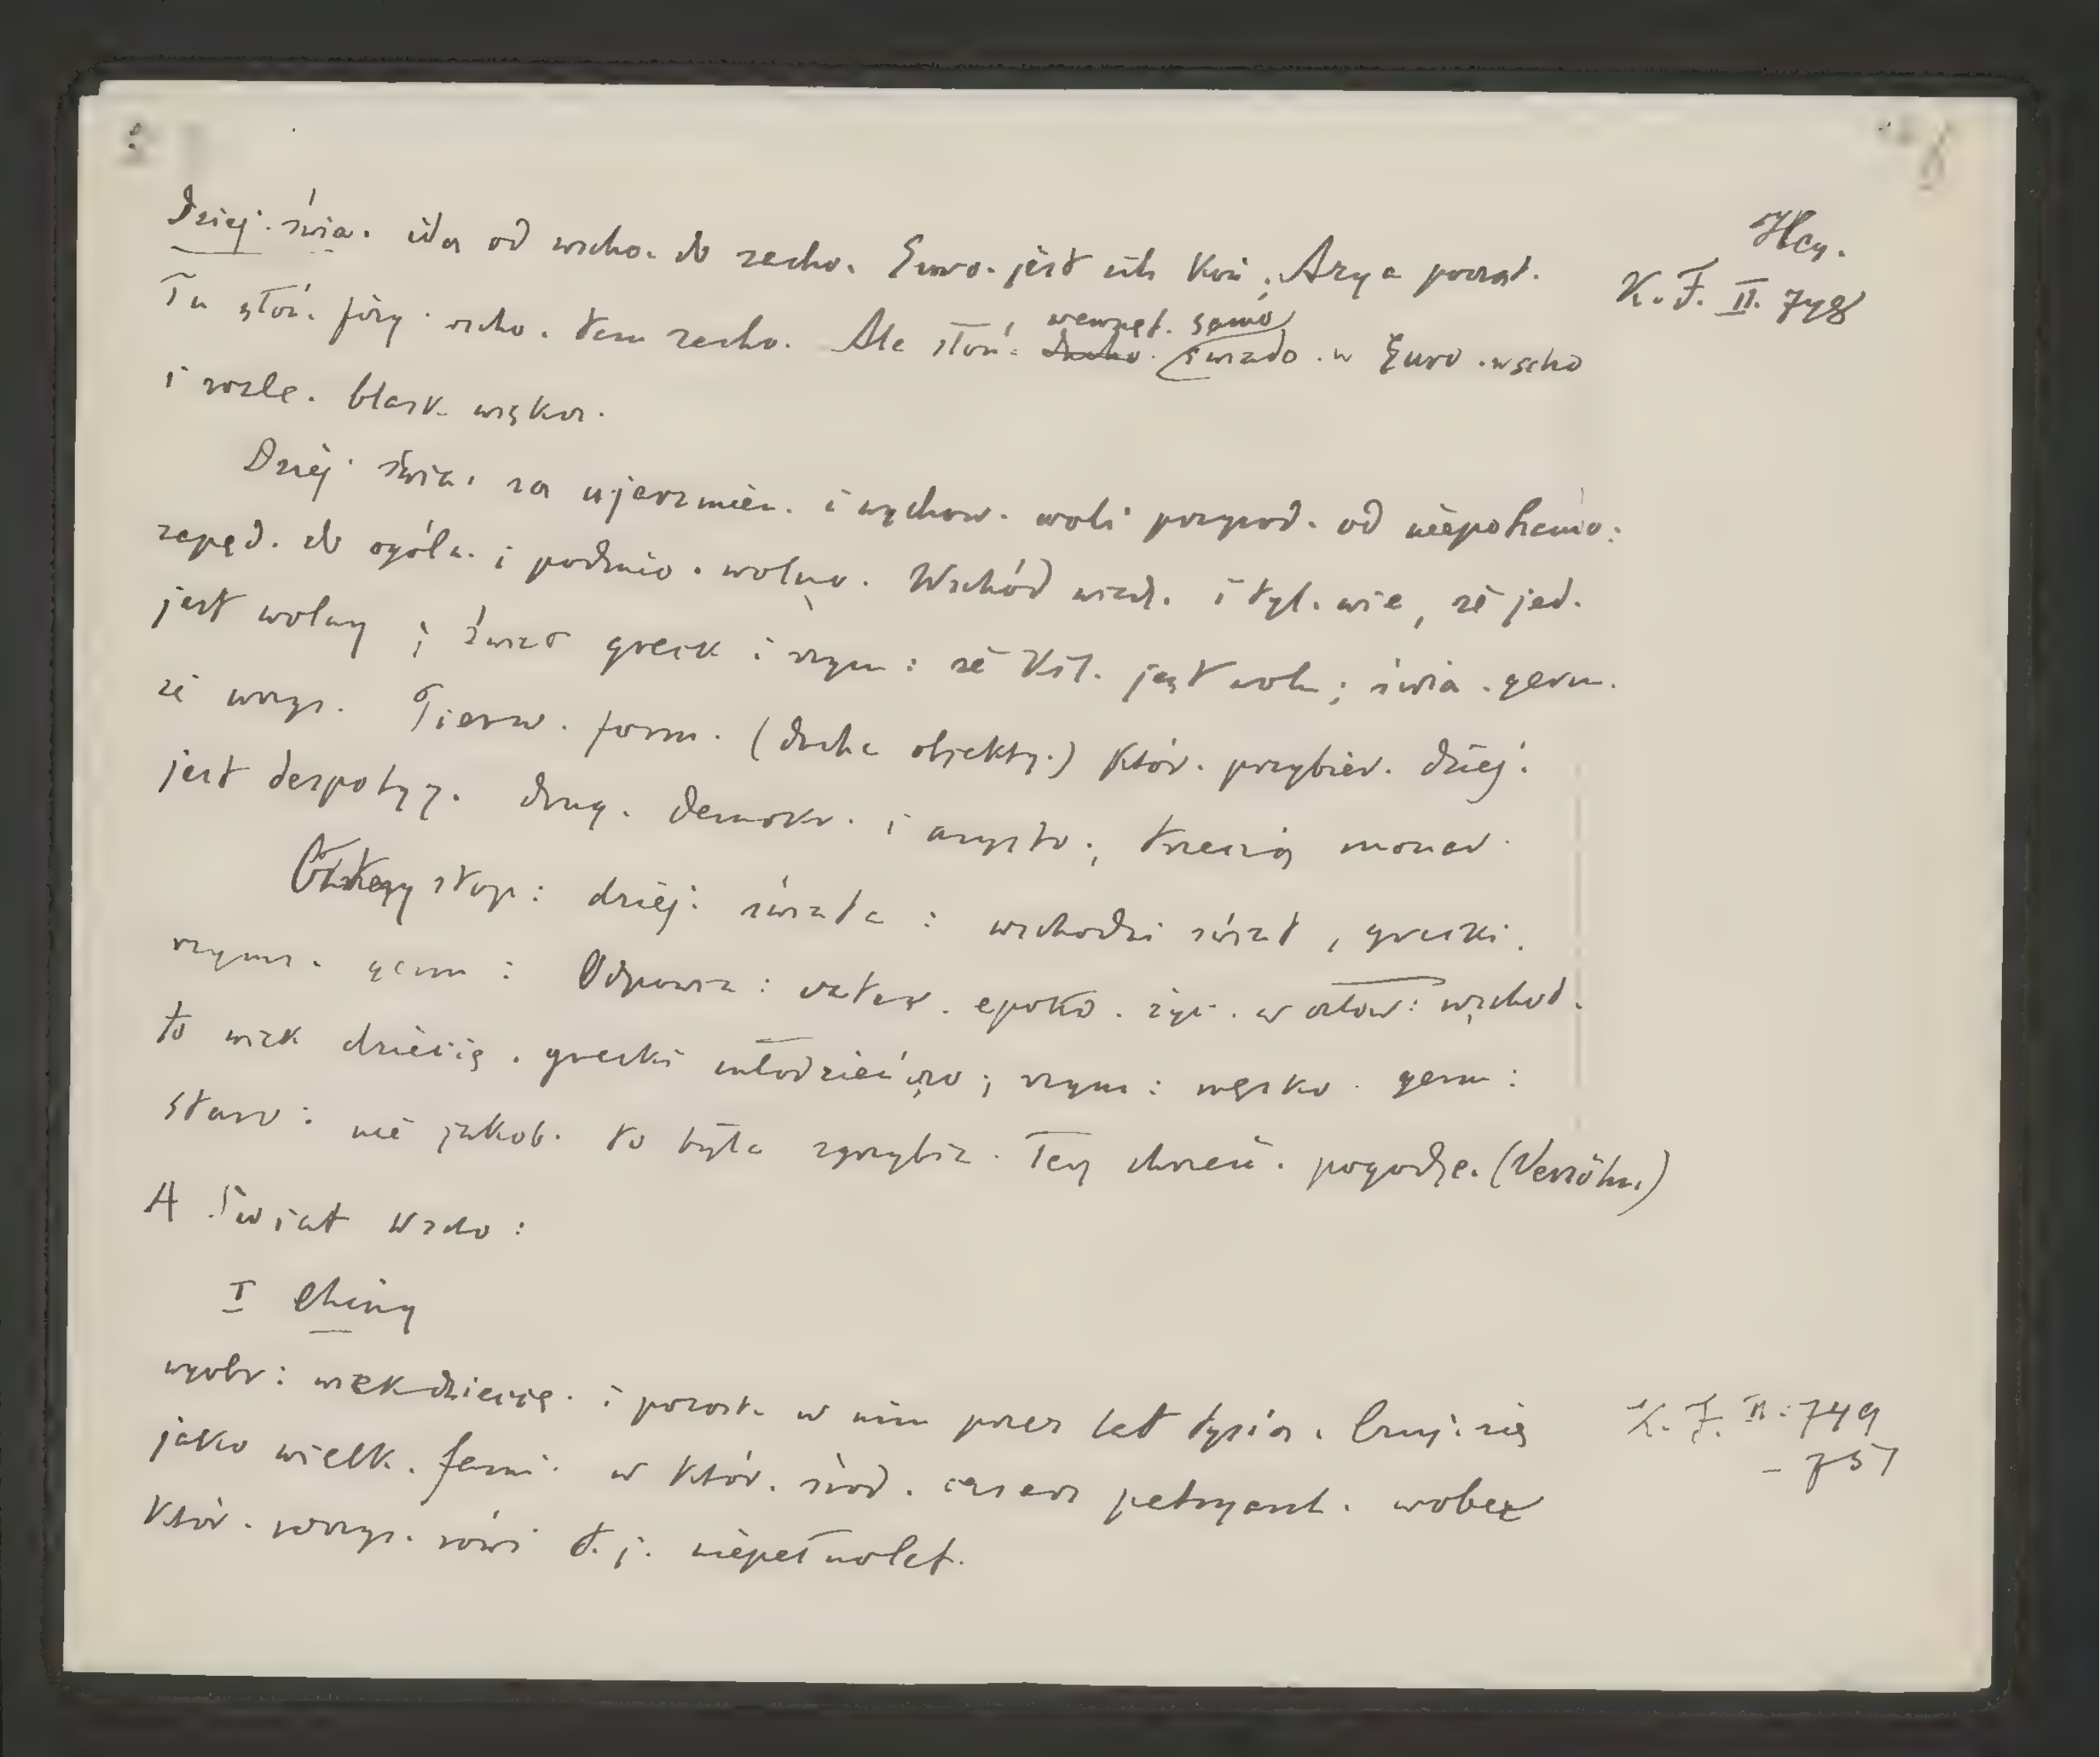 Heg.
Dziej. świa. idą od wscho. do zacho. Euro. jest ich koń.; Azya począt.
K. F. II. 748
wewnęt. samo
Tu słoń. fizy. wscho. tam zacho. Ale słoń. ducho. świado. w Euro. wscho
i rozle. blask więks.
Dziej. świa. są ujarzmien. i wychow. woli przyrod. od niepohamo:
zapęd. do ogóln. i podmio. wolno. Wschód wiedz. i tyl. wie, że jed.
jest wolny; świat greck i rzym: że kil. jest woln; świa. germ.
że wszys. Pierw. form. (ducha objekty.) któr. przybier. dziej:
jest despotyz. drug. demokr. i aryst.; trzecią monar.
Cztery stop: dziej: świata: wschodni świat, grecki.
rzyms. germ: Odpowia: wiekow. epoko. życ. w człow: wschod.
to wiek dziecię. grecki młodzieńczo; rzym: męsko. germ:
staro: nie jakob. to była zgrzybia. Tej chrześ. pogodze. (Versöhn.)
A Świat Wscho:
I Chiny
wyobr: wiek dziecię. i pozost. w nim przez lat tysią. Czuj. się
K. F. II: 749
- 751
jako wielk. fami. w któr. środ. cesarz patryarch. wobec
któr. wszys. równi t. j. niepełnolet.